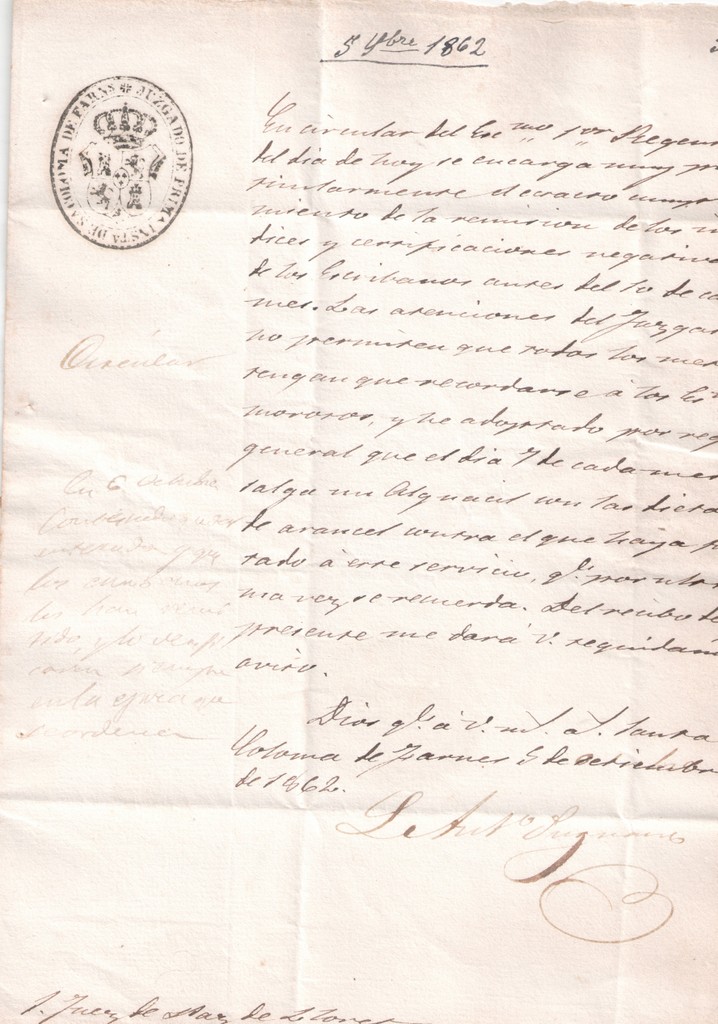 5 9bre 1862
JUZGADO DE PRIMA. INSTA. DE STA. COLOMA DE FARNS
En circular del Exmo. Sor Regen
del dia de hoy se encarga muy p
ticularmente el exacto cumpli
miento de la remision de los in
dices y certificaciones negativ
de los Escribanos antes del 10 de ca
mes. Las atenciones del Juzga
no permiten que todos los mes
tengan que recordarse á los Es
morosos, y he adoptado por reg
general que el dia 7 de cada mes
salga un Alguacil con las dieta
de arancel contra el que haya f
tado á este servicio, q. por ulti
ma vez se recuerda. Del recibo de
presente me dará V. seguidam
aviso.
Dios gu. á V. m. a. S. Santa
Coloma de Farnes 5 de Setiembre
de 1862.
L. Anto.
Circular
En 6 Setiembre
enterado y que
los
los han remi
tido y lo
siempre
en la epoca que
se ordena
S. Juez de Paz de Lloret